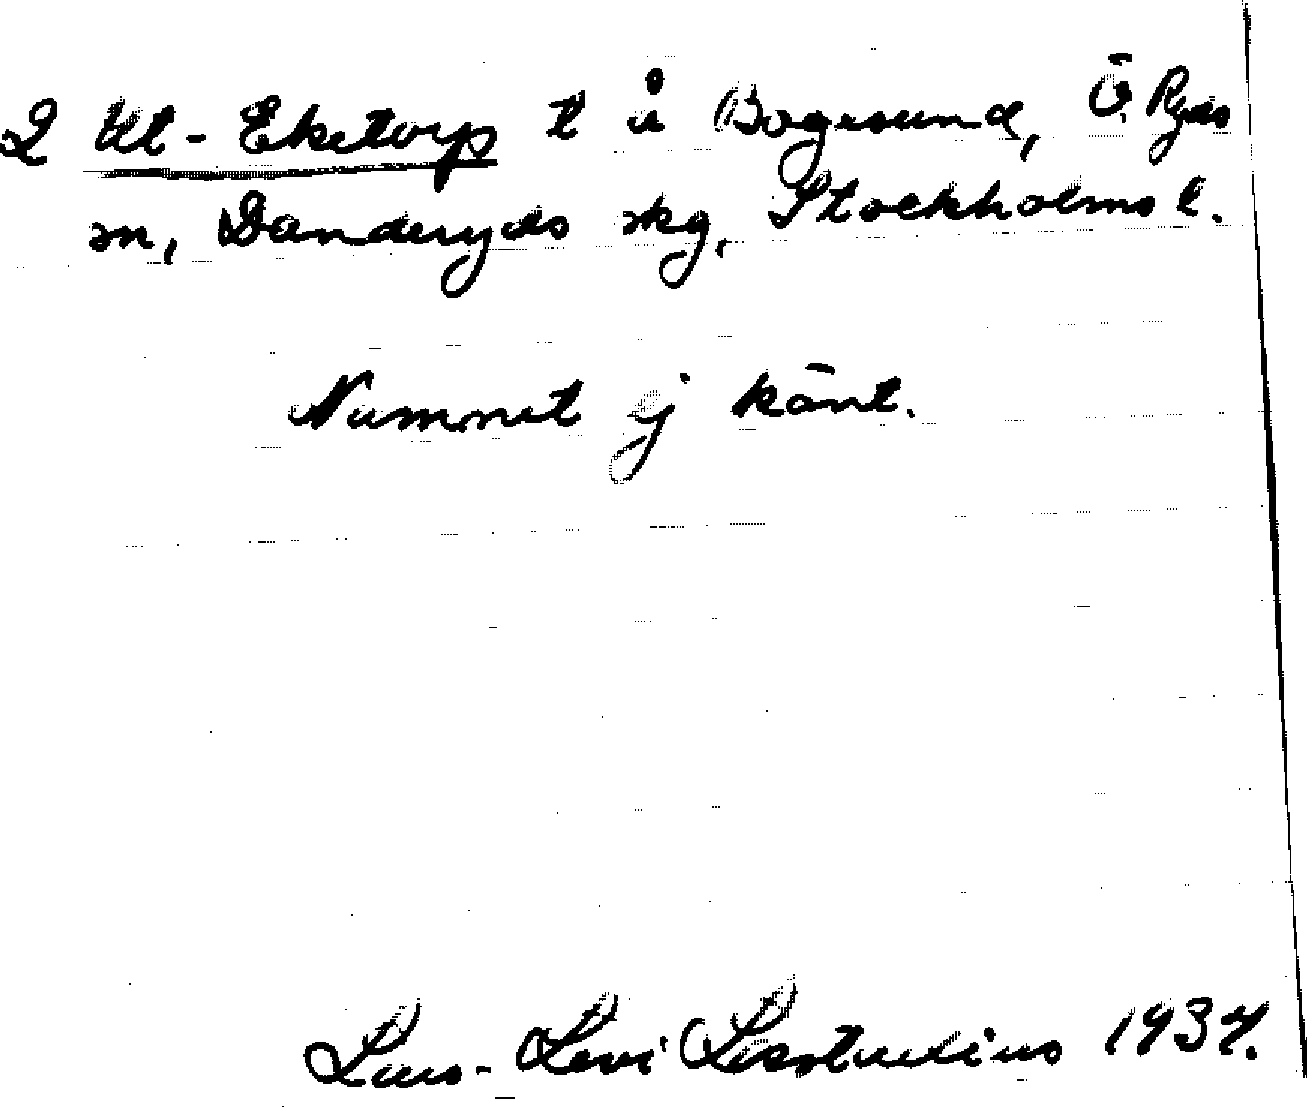 2 Ut-Eketorp t å Bogesund, Ö. Ryds
sn, Danderyds skg, Stockholms l.
Namnet ej känt.
Lars-Levi Læstadius 1937.